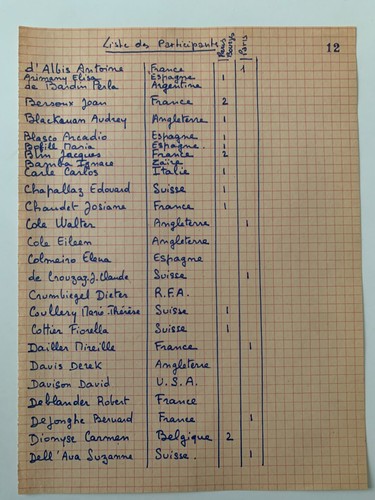 Liste des Participants
Pens Bourgs Paris 12
d'Albis Antoine France 1
Arimany Elisa Espagne 1
de Bardin Perla Argentine
Bersoux Joan France 2
Blackman Audrey Angleterre 1
Blasco Arcadio Espagne 1
Bofill Maria Espagne. 1
Blin Jacques France 2
Bamba Ignace Zaïre
Carle Carlos Italie 1
Chapallaz Edouard Suisse 1
Chaudet Josiane France 1
Cole Walter Angleterre 1
Cole Eileen Angleterre
Colmeiro Elena Espagne
de Crouzaz J. Claude Suisse 1
Crumbiegel Dieter R.F.A.
Coullery Marie Thérèse Suisse 1
Cottier Fiorella Suisse 1
Dailler Mireille France 1
Davis Derek Angleterre
Davison David U.S.A.
Deblander Robert France
Dejonghe Bernard France 1
Dionyse Carmen Belgique 2
Dell'Ava Suzanne Suisse. 1